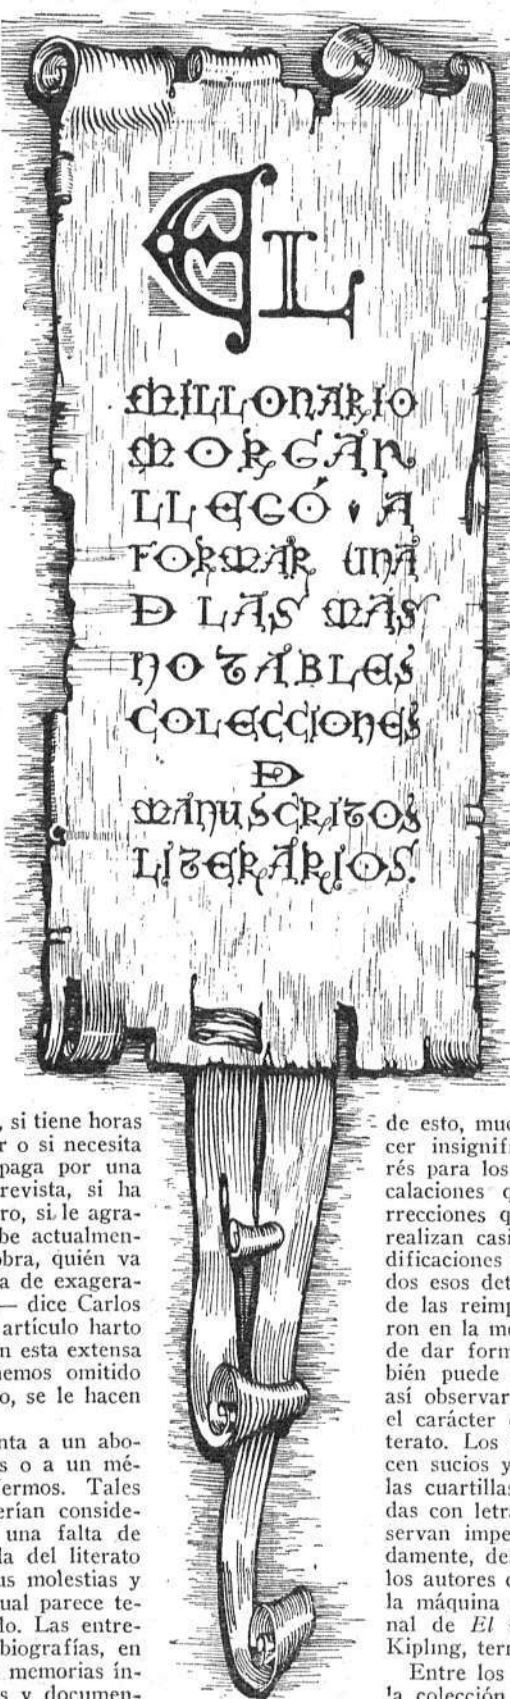 EL
MILLONARIO
MORGAN
LLEGÓ A
FORMAR UNA
D LAS MAS
NOTABLES
COLECCIONES
D
MANUSCRITOS
LITERARIOS.
, si tiene horas
r o si necesita
paga por una
revista, si ha
ro, si le agra-
be actualmen-
obra, quién va
a de exagera-
— dice Carlos
artículo harto
n esta extensa
hemos omitido
o, se le hacen
nta a un abo-
s o a un mé-
ermos. Tales
erían conside-
una falta de
la del literato
us molestias y
ual parece te-
do. Las entre-
biografías, en
memorias ín-
s y documen-
de esto, muc
cer insignifi
rés para los
calaciones q
rrecciones q
realizan casi
dificaciones
dos esos det
de las reimp
ron en la me
de dar form
bién puede
así observar
el carácter
terato. Los
cen sucios y
las cuartillas
das con letra
servan impe
damente, de
los autores
la máquina
nal de El
Kipling, terr
Entre los
la colección